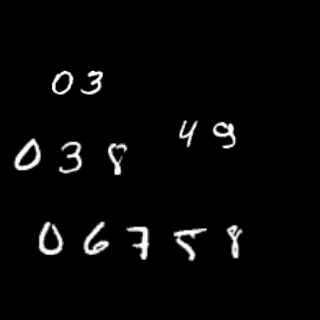 03
49
038
06758